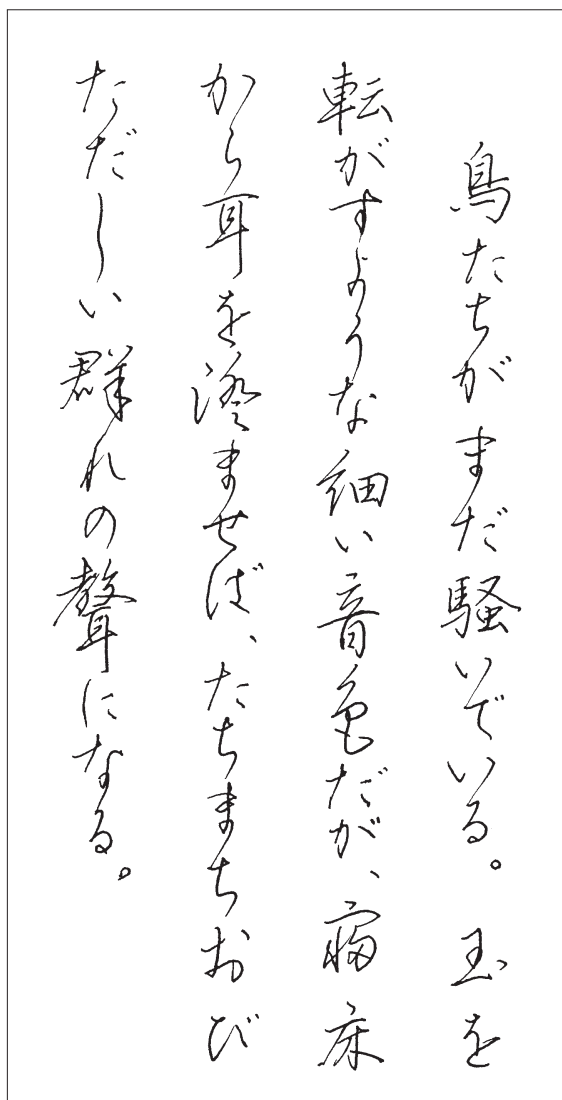 鳥たちがまだ騒いでいる。玉を
転がすような細い音色だが、寝床
から耳を澄ませば、たちまちおび
ただしい群れの聲になる。